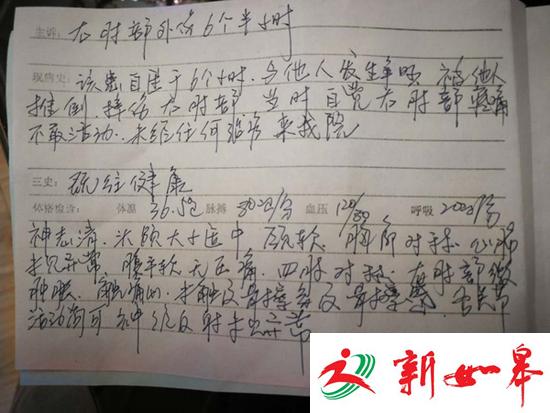 主诉: 右肘部外伤6个半小时
现病史: 该患自述于6个小时前与他人发生争吵 被他人
推倒 摔伤右肘部 当时自觉右肘部疼痛
不敢活动. 未经任何治疗来我院
三史: 既往健康
体格检查: 体温 36.5℃ 脉搏 80次/分 血压 120/80 呼吸 20次/分
神志清. 头颅大小适中 颈软 胸廓对称. 心肺
未见异常 腹平软 无压痛. 四肢对称. 右肘部
肿胀. 压痛 未触及骨擦 及骨擦 关节
活动尚可 神经反射未见异常
新如皋